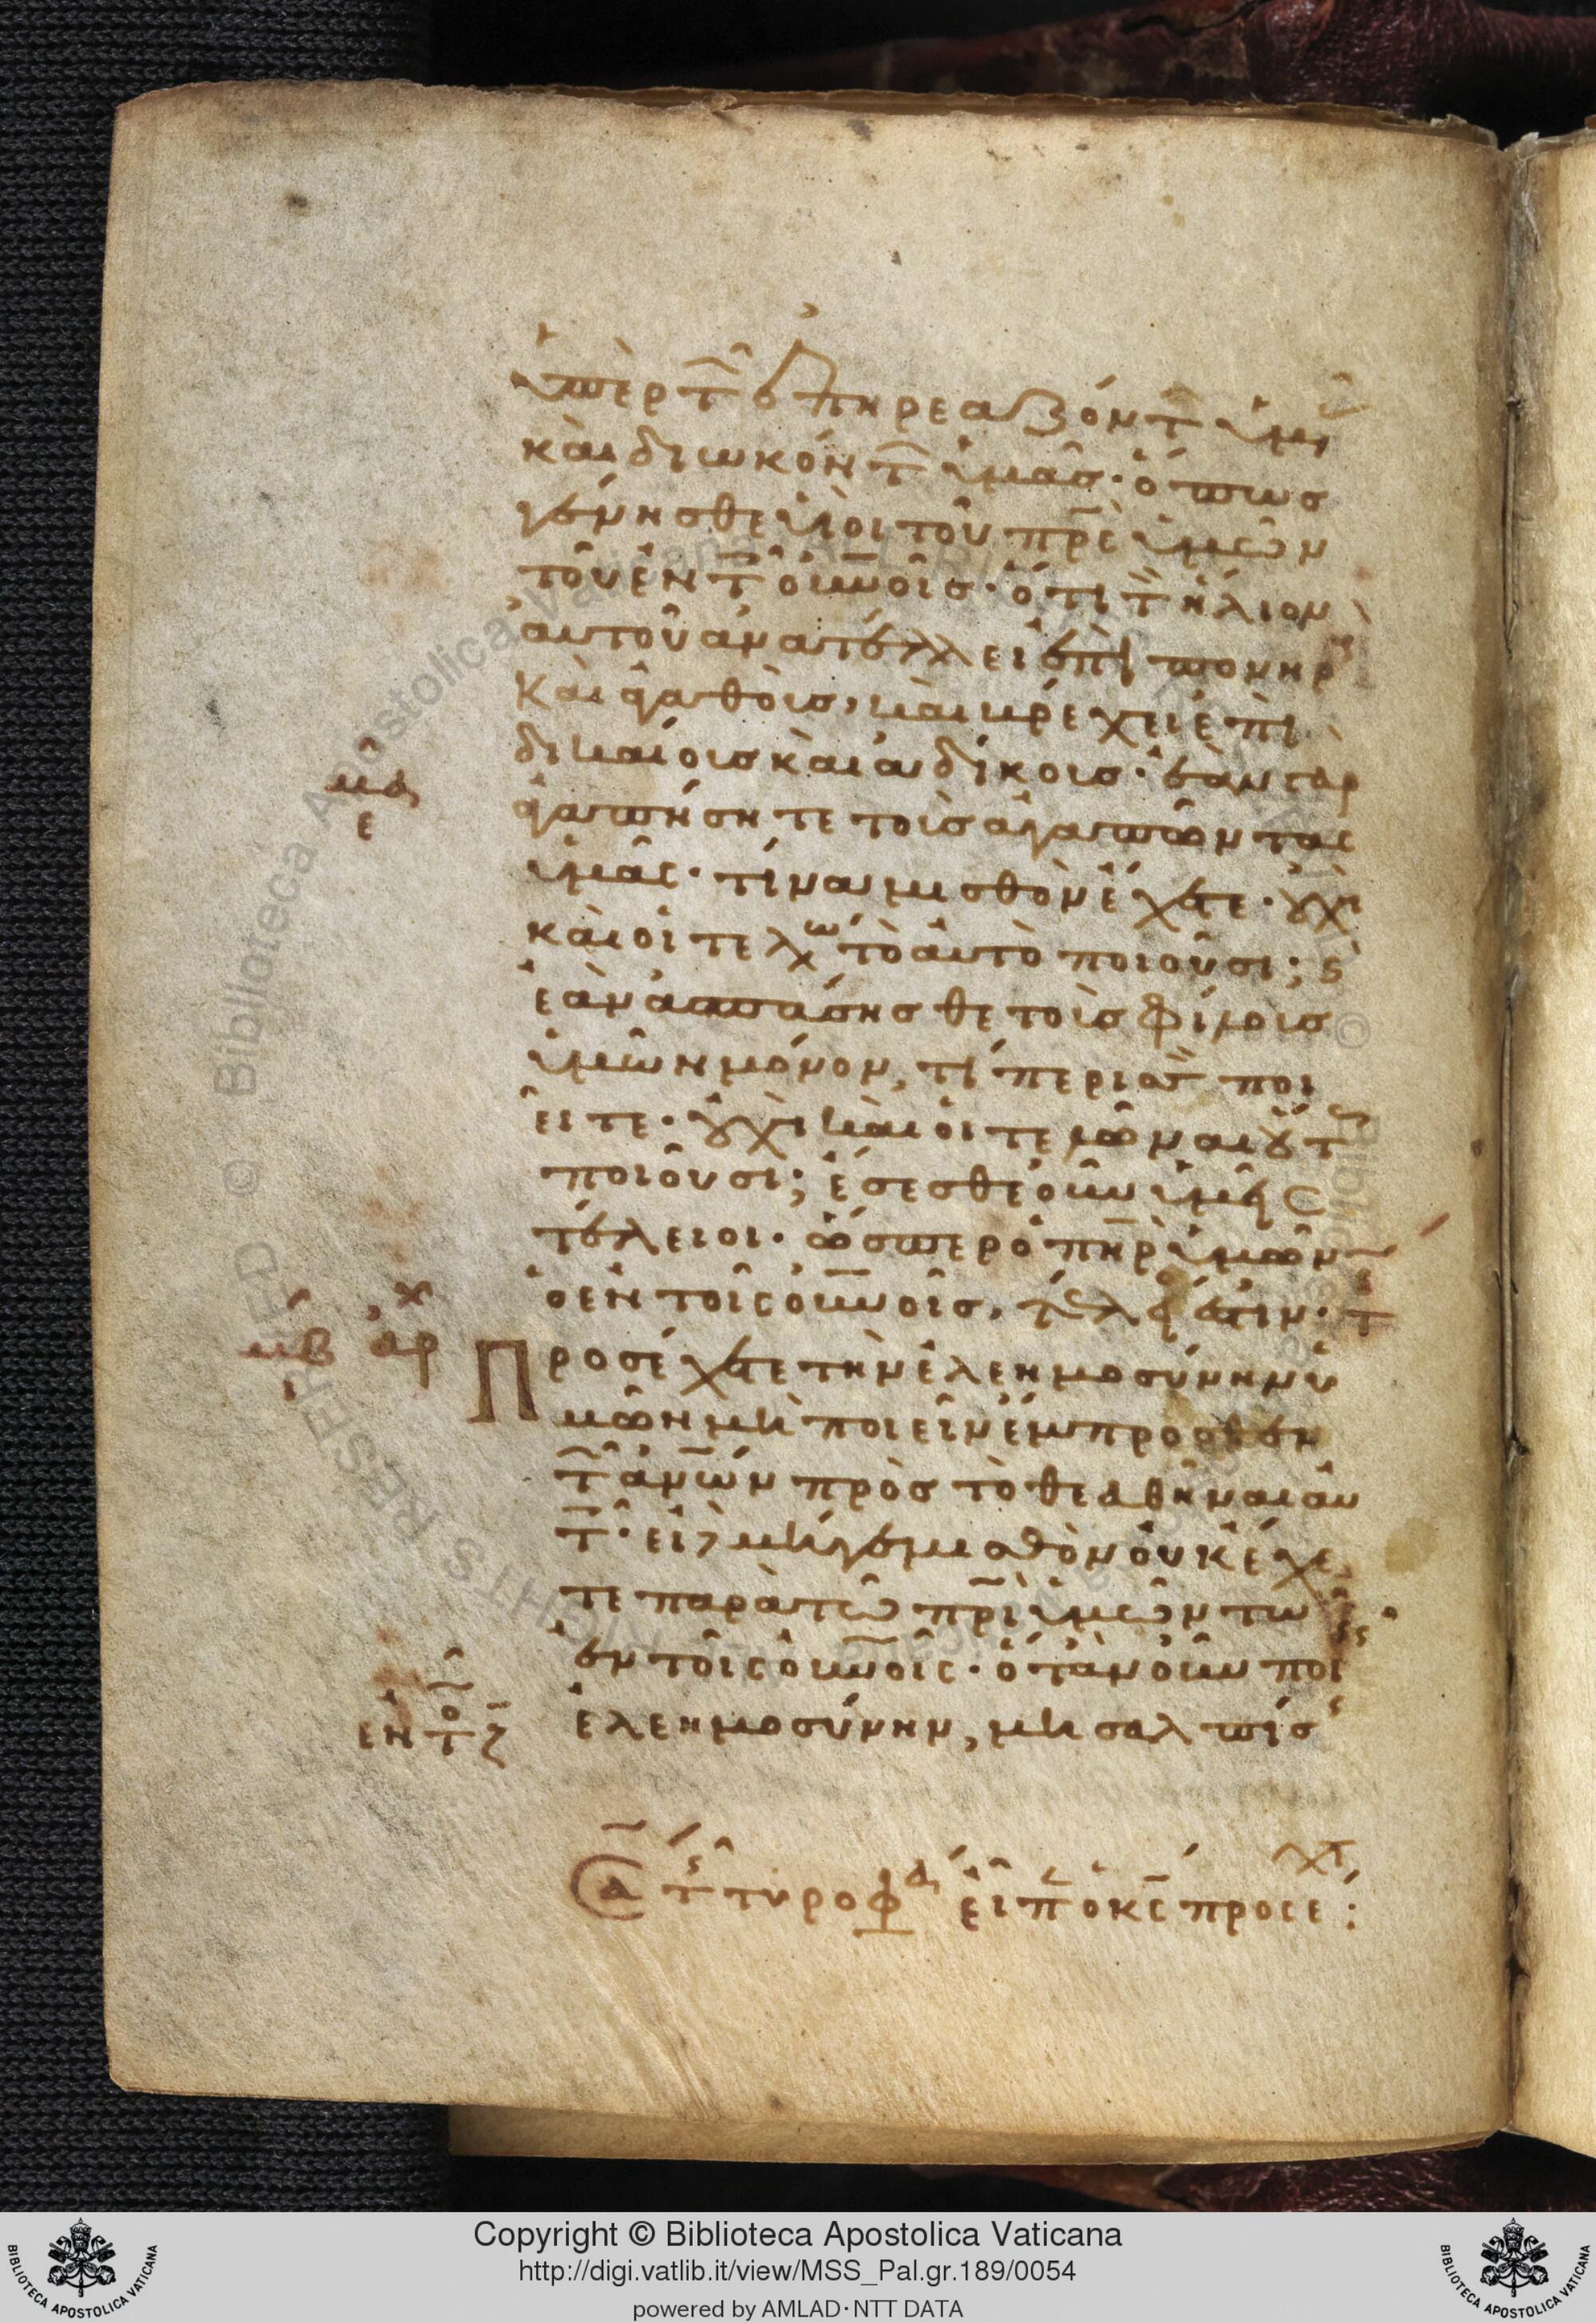 ὑπὲρ τ̑ ἐπηρεαζόντ̑ ὑμᾶ
καὶ διωκόντ̑ ὑμᾶσ· ὅπωσ
γένησθε ὑιοι τοῦ πρ̅ς ὑμῶν
τοῦ ἐν τ̑ οὐν̅οῖσ· ὅτι τ̀ ἥλιον
αὐτοῦ ἀνατέλλει ἐπὶ πονηρ
καὶ ἀγαθοὺσ, καὶ βρέχει ἐπὶ
δικαίουσ καὶ ἀδίκουσ· ἐὰν γὰρ
ἀγαπήσητε τοὺσ ἀγαπῶντας
ὑμᾶς· τίνα μισθὸν ἔχετε· οὐχὶ
καὶ οἱ τελῶ τὸ αὐτὸ ποιοῦσι; ϛ
ἐὰν ἀσπάσησθε τοὺσ φίλουσ
ὑμῶν μόνον, τί περισὸ ποι
εῖτε· οὐχὶ καὶ οἱ τελῶναι οὕτ
ποιοῦσι; ἔσεσθε οὖν ὑμεῖς
τέλειοι· ὥσπερ ὁ πη̅ρ ὑμῶν
ὁ ἐν τοῖς οὐν̅οῖσ, τέλειός ἐστιν· τ
Προσέχετε τὴν ἐλεημοσύνην ὑ
μῶν μὴ ποιεῖν ἔμπροσθεν
τ̑ ἀν̅ων πρὸσ τὸ θεαθῆναι αὐ
τ̑· εἰ δὲ μήγε μισθὸν οὐκ ἔχε
τε παρὰ τῶ πρ̅ι ὑμῶν τῶ
ἐν τοῖς οὐν̅οῖς· ὅταν οὖν ποι
ἐλεημοσύνην, μὴ σαλπίσ
μδ
ε
μβ
ι
ἀρχ
ἐν τ̑ ζ
τ τυροφ εἶπ ὁ κς̅ προσέχτ:
Copyright © Biblioteca Apostolica Vaticana
http://digi.vatlib.it/view/MSS_Pal.gr.189/0054
powered by AMLAD·NTT DATA
BIBLIOTECA APOSTOLICA VATICANA
BIBLIOTECA APOSTOLICA VATICANA